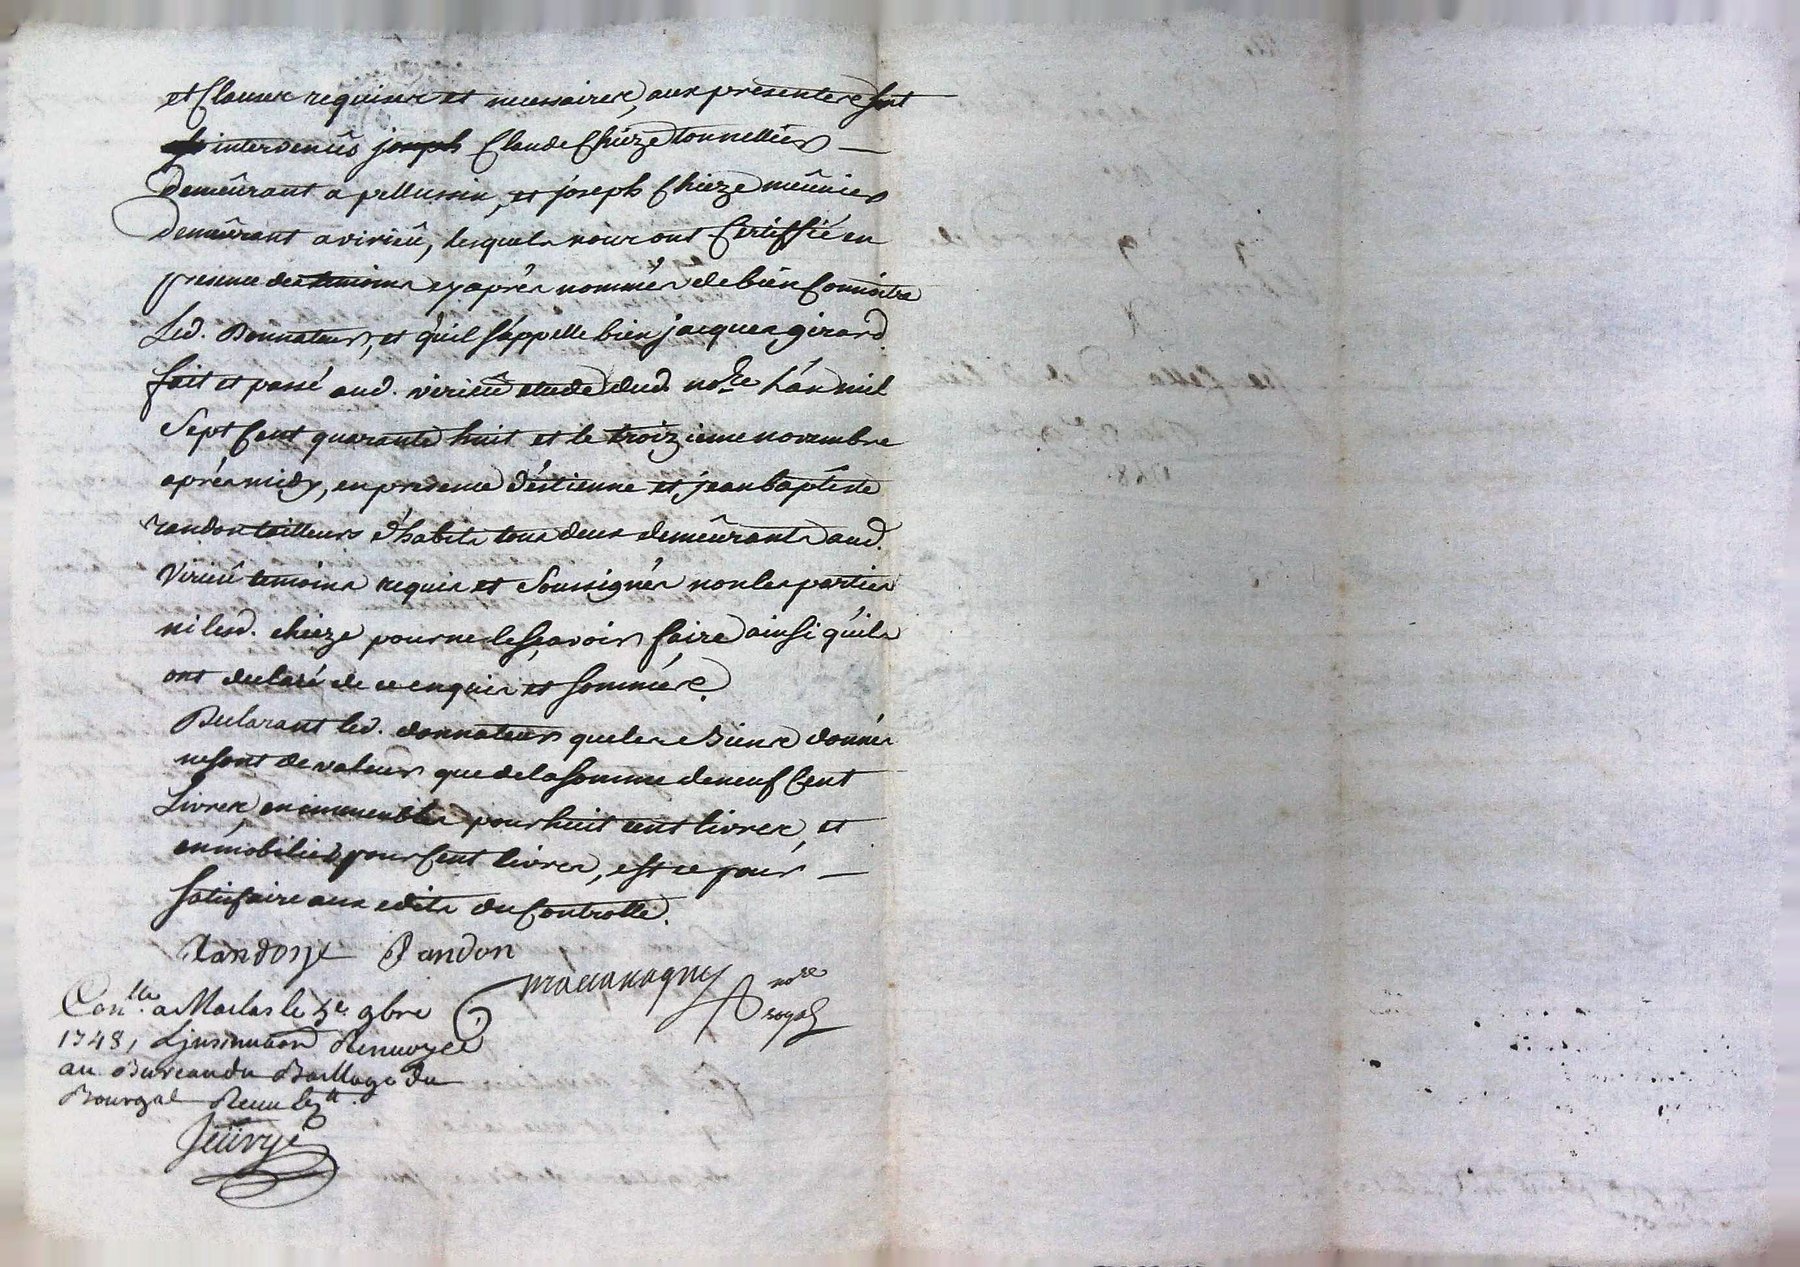 et Clauses requises et necessaires, aux presentes sont
intervenûs joseph Claude Chieze tonnellier
demeûrant a pellussin, et joseph Chieze meûnier
demeûrant a virieû, lesquels nous ont Certiffié en
presence des temoins cy après nommés de bien Connoitre
Led. Donnateur, et qu'il s'appelle bien jacques girard.
fait et passé aud. virieû etude dud. nore. l'an mil
Sept Cent quarante huit et le troizieme novembre
après midy, en presence d'estienne et jean baptiste
randon tailleurs d'habits tous deux demeûrants aud.
Virieû temoins requis et Soussignés non les parties
ni lesd. chieze pour ne le sçavoir faire ainsi qu'ils
ont declaré de ce enquis et sommés.
Declarant led. donnateur que les Biens donnés
ne sont de valeur que de la somme de neuf Cent
Livres, en immeubles pour huit cent livres, et
en mobilier pour Cent livres, est ce pour
satisfaire aux edits du Controlle.
Randon Randon
nore
royal
Conlle. a Maclas le 5e 9bre
1748, Linsinuation Renvoyée
au Bureau du Baillage du
Bourgal Receu